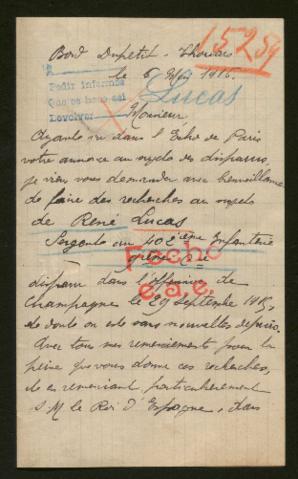 15259
Bord Dupetit-Thouars
le 6 1916.
Pedir informes
Que se haga así
Devolver
Lucas
Monsieur,
Ayant vu dans l'Echo de Paris
votre annonce au sujet des disparus,
je viens vous demander avec bienveillance
de faire des recherches au sujet
de René Lucas
Sergent au 402ième Infanterie
Fecho
disparu dans l'offensive de
e.s.e.
Champagne le 29 Septembre 1915,
et dont on est sans nouvelles depuis.
Avec tous mes remerciements pour la
peine que vous donne ces recherches,
et en remerciant particulièrement
S. M. le Roi d'Espagne, dans